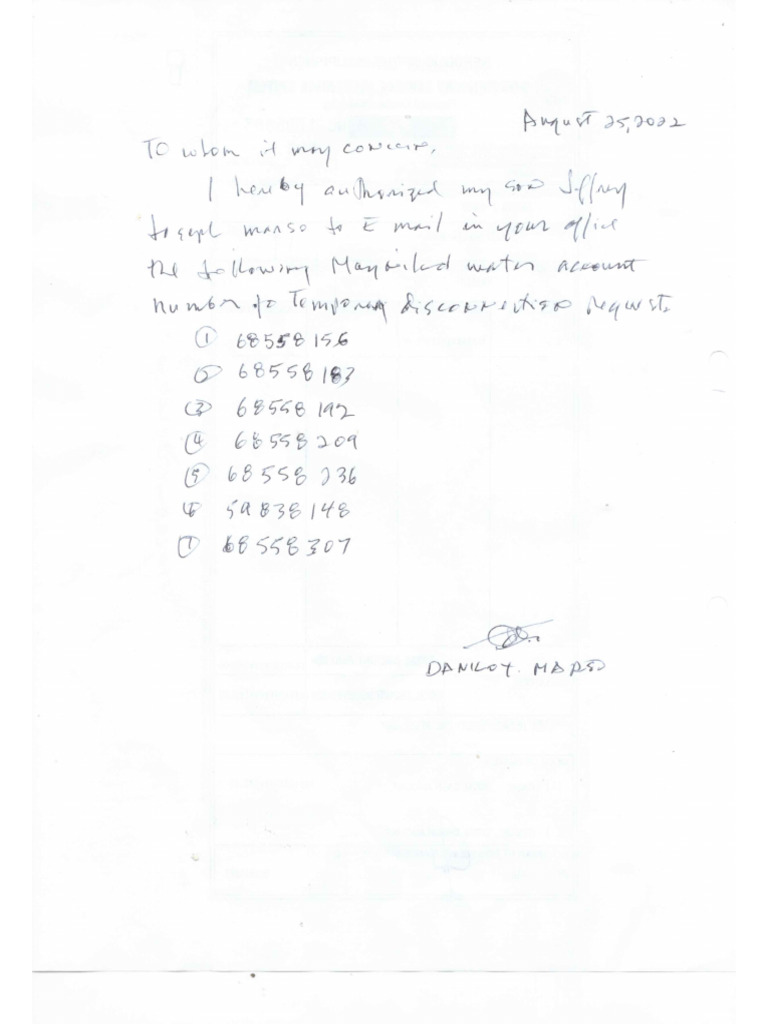 August 25, 2022
To whom it may concern,
I hereby authorized my son Jeffrey
Joseph to E mail in your office
the following Maynilad water account
number for Temporary disconnection request.
① 68558156
② 68558183
③ 68558192
④ 68558209
⑤ 68558236
⑥ 59838148
⑦ 68558307
DANILO Y.